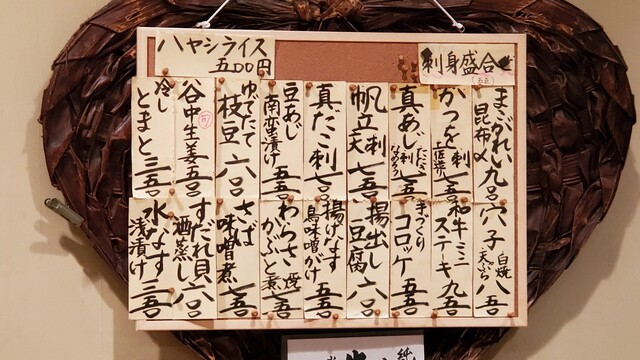 刺身盛合
ハヤシライス
五〇〇円
まこがれい 昆布〆 九〇〇
かつを刺 土佐造り 七五〇
真あじ刺 たたき なめろう 七五〇
帆立刺 天 七五〇
真だこ刺 七〇〇
豆あじ南蛮漬け 五五〇
ゆでたて枝豆 六〇〇
谷中生姜 五〇〇
冷しとまと 三五〇
穴子 白焼 天ぷら 八五〇
和牛ミニステーキ 九五〇
まっくりコロッケ 五五〇
揚出し豆腐 六〇〇
揚げなす鳥味噌がけ 五五〇
わらさ 焼 かぶと煮 七五〇
さば味噌煮 七五〇
すだれ貝酒蒸し 六〇〇
水なす浅漬け 三五〇